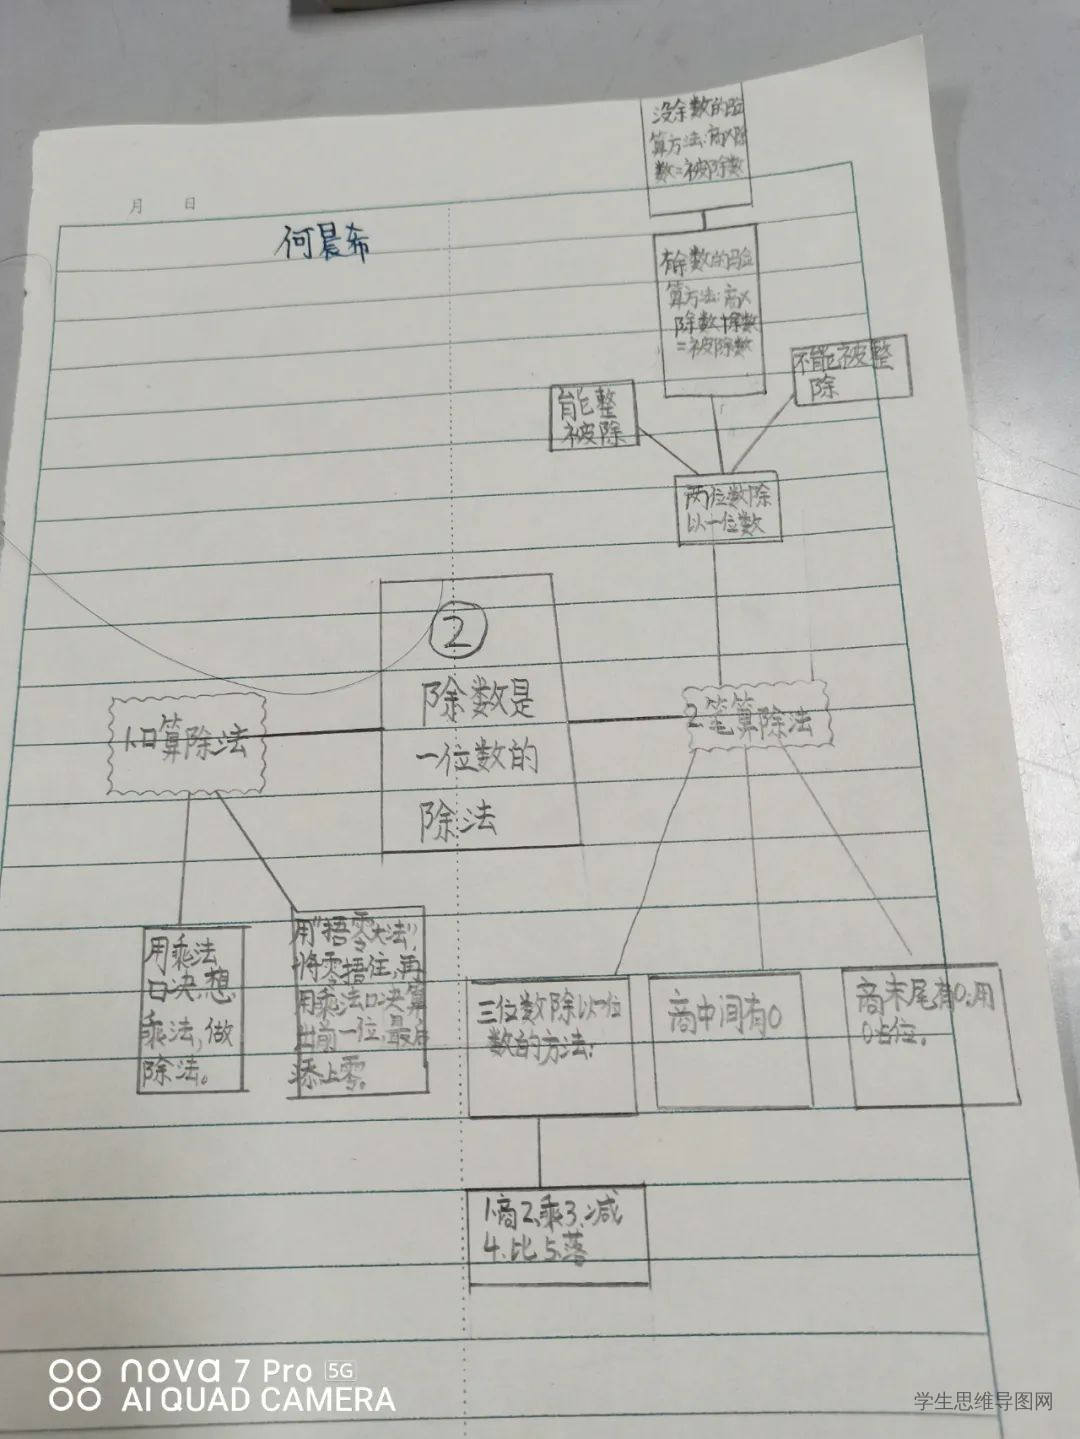 没余数的验
算方法:商×除
数=被除数
月 日
何晨希
有余数的验
算方法:商×
除数+余数
=被除数
不能被整
除
能整
被除
两位数除
以一位数
②
除数是
一位数的
除法
1.口算除法
2.笔算除法
用乘法
口决,想
乘法,做
除法。
用“捂零大法”,
将零捂住,再
用乘法口决算
出前一位,最后
添上零。
三位数除以一位
数的方法:
商中间有0
商末尾有0,用
0占位。
1.商2.乘3.减
4.比5.落
nova 7 Pro 5G
AI QUAD CAMERA
学生思维导图网